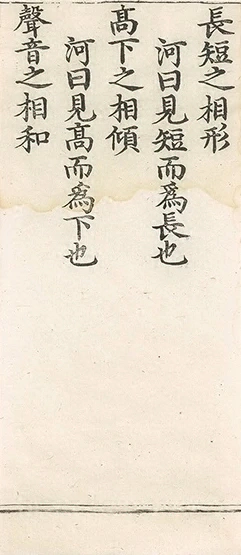 長短之相形
河曰見短而爲長也
髙下之相傾
河曰見髙而爲下也
聲音之相和